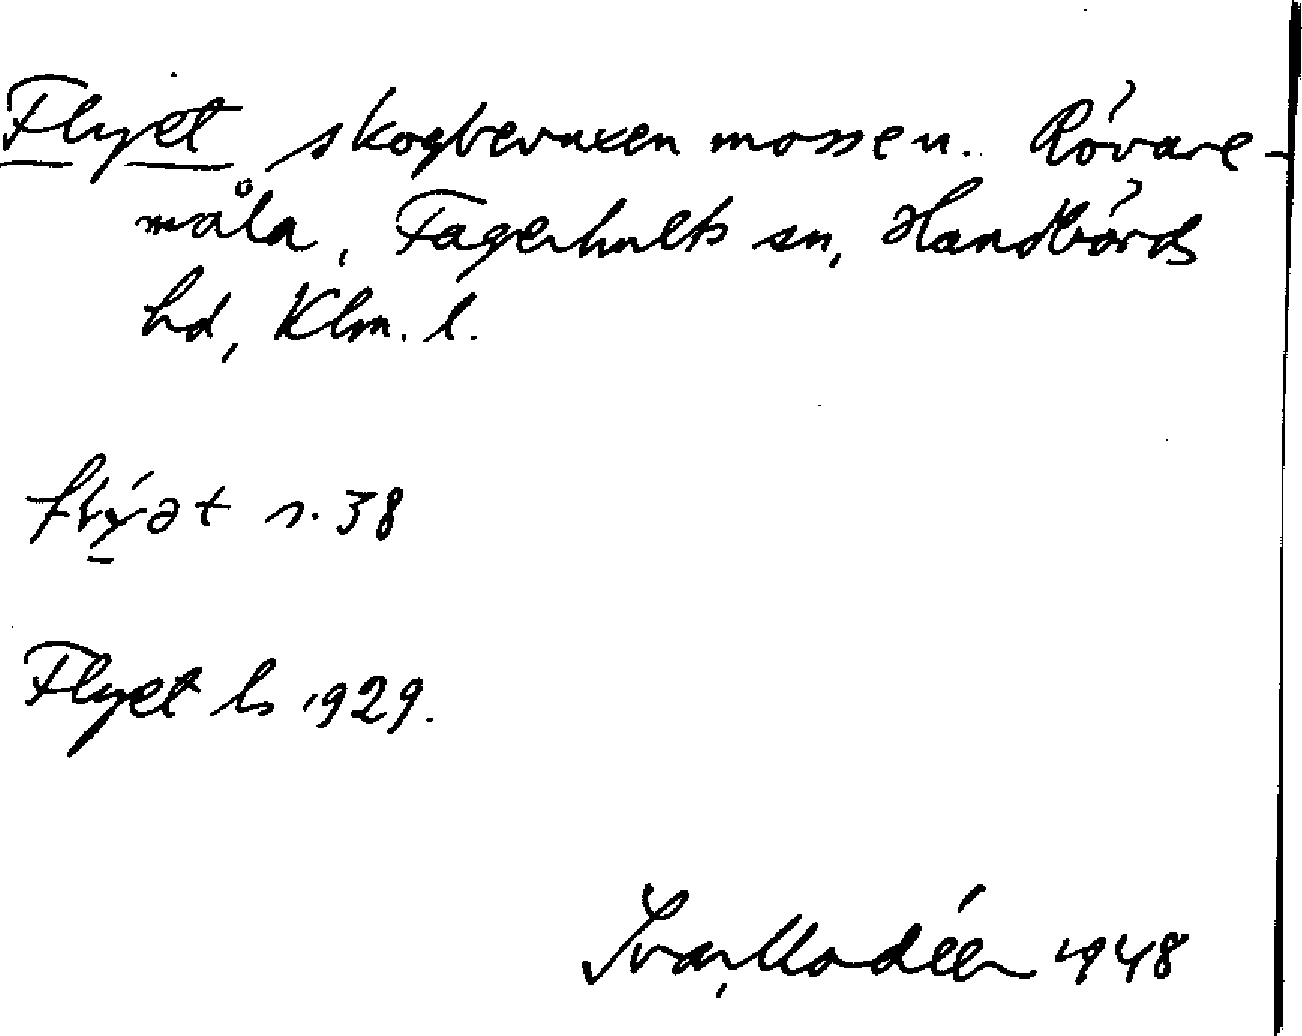 Flyet skogbevuxen mosse n.. Rövare-
måla, Fagerhults sn, Handbörds
hd, Klm. l.
flýət s. 38
Flyet ls 1929.
Ivar Modéer 1948